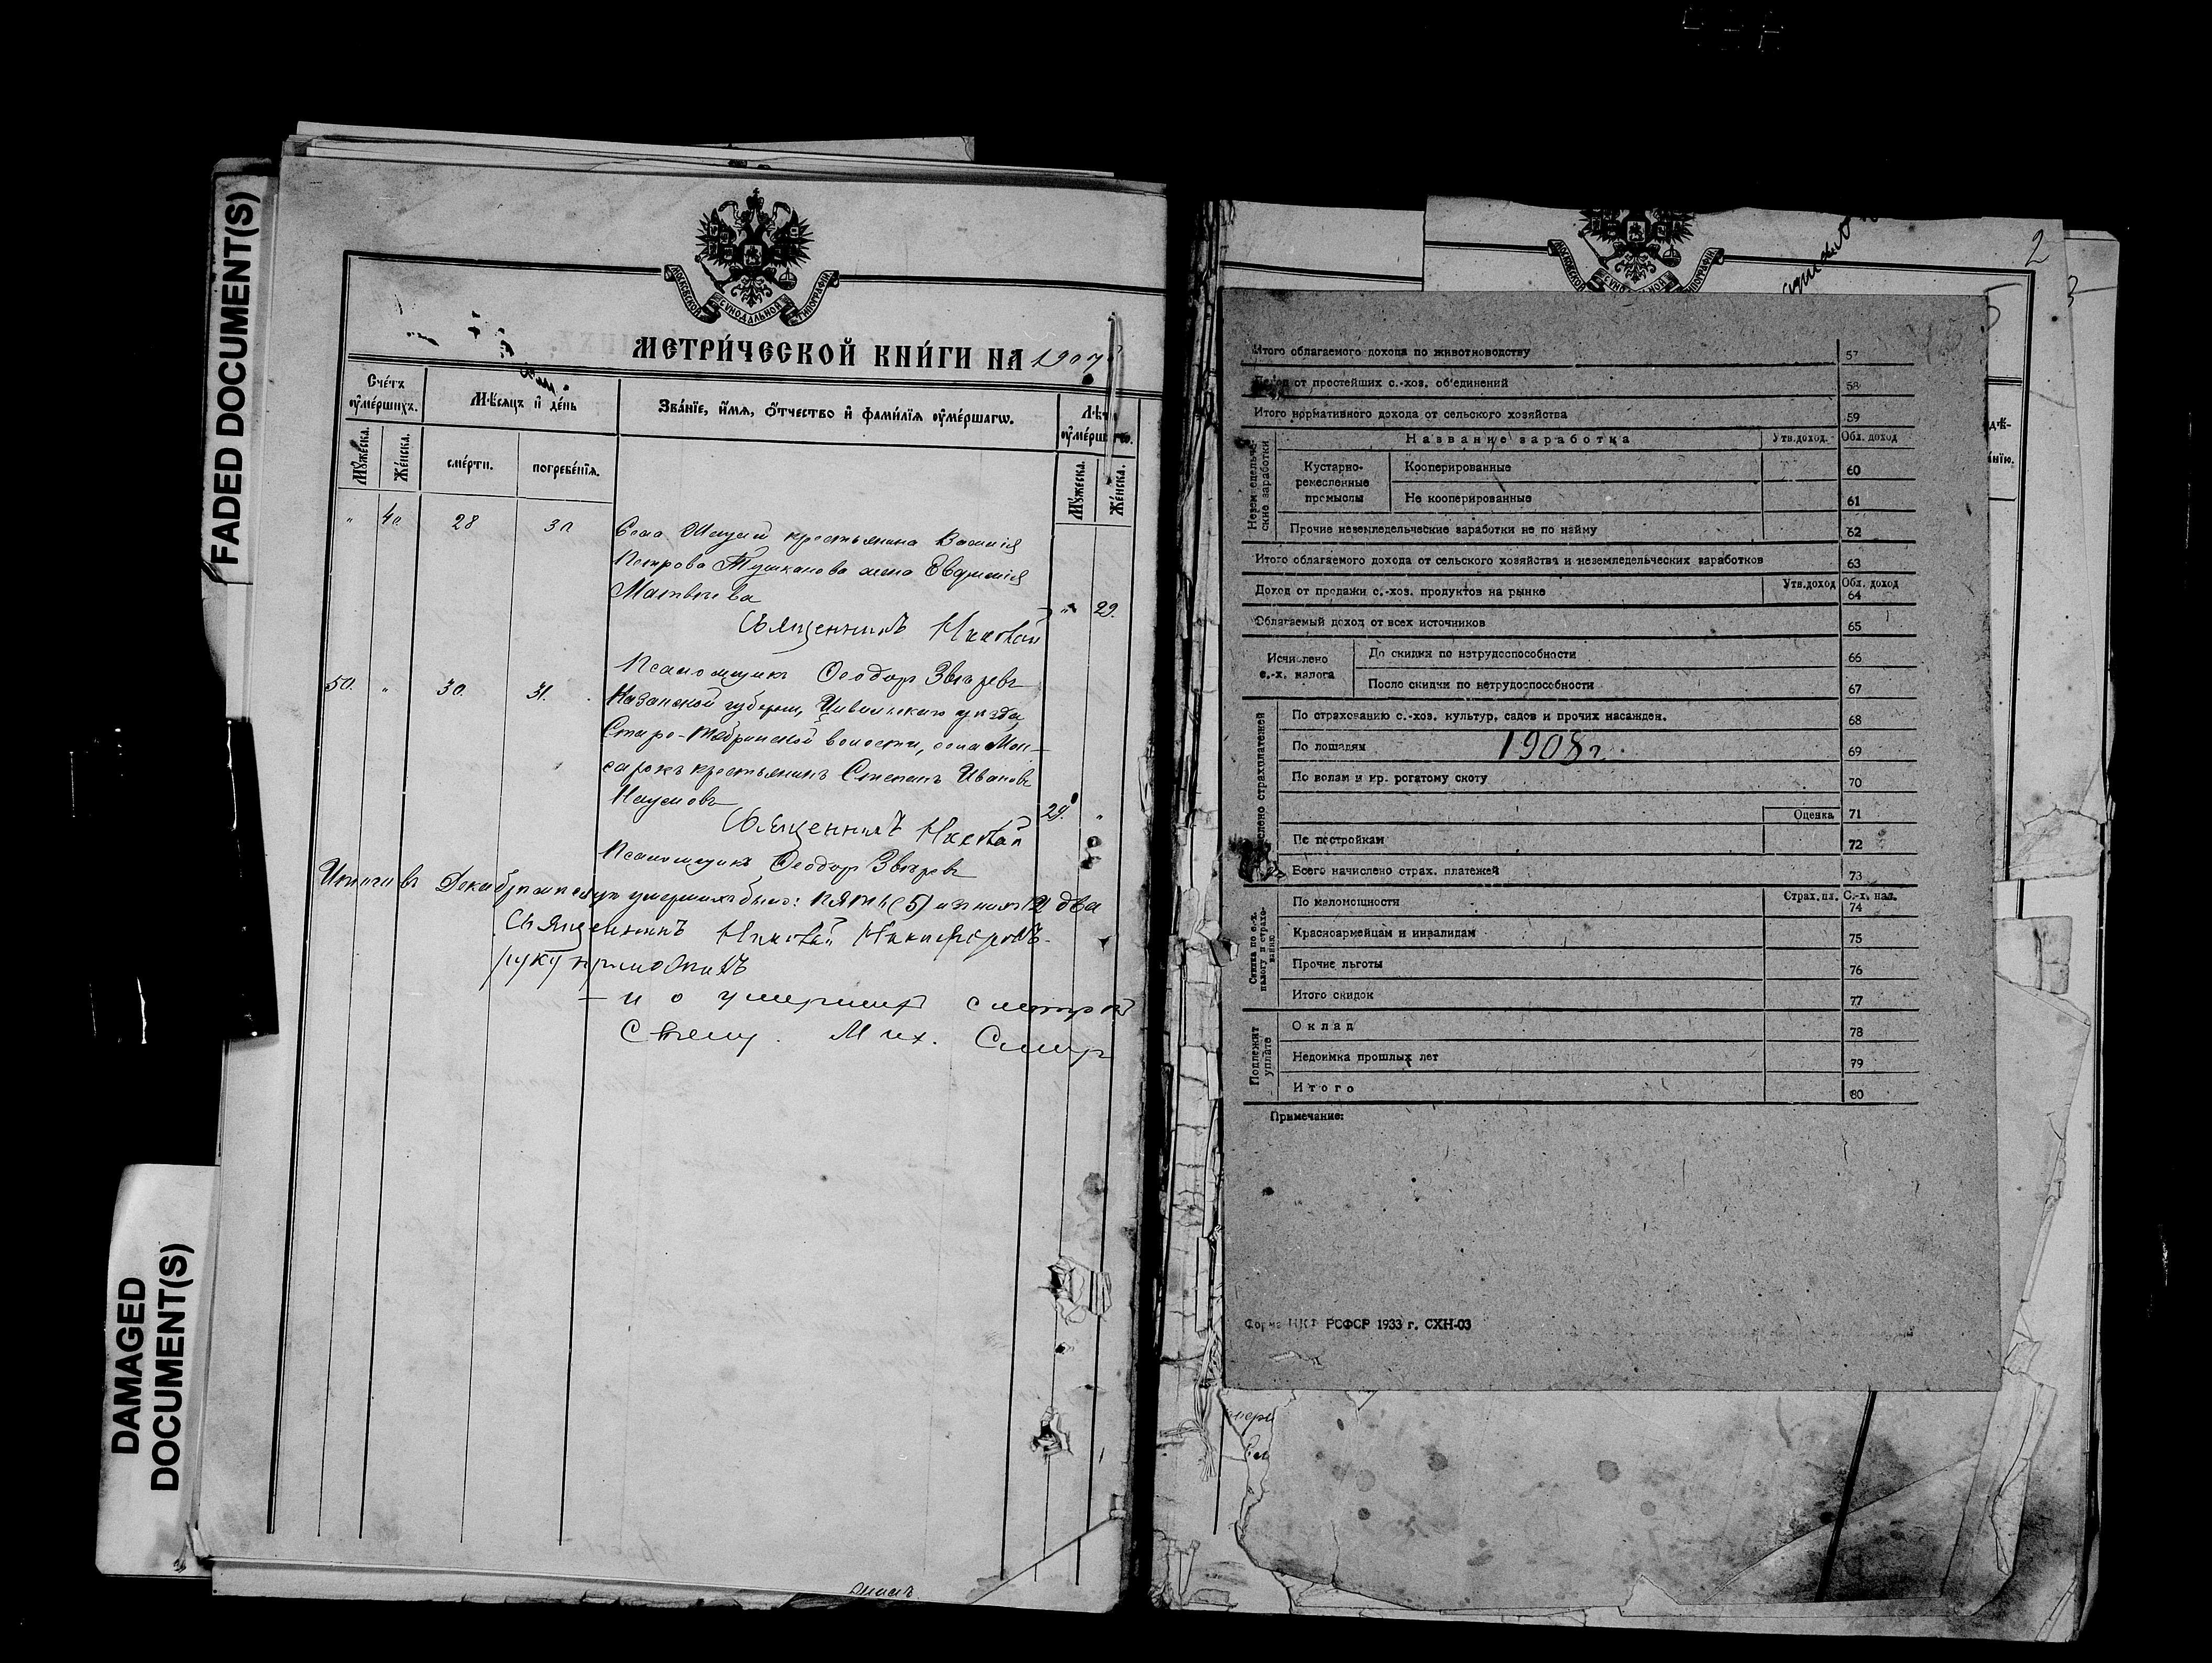 FADED DOCUMENT(S)
DAMAGED
DOCUMENT(S)
МОСКОВСКОЙ СѴНОДАЛЬНОЙ ТИПОГРАФІИ
МЕТРИ́ЧЕСКОЙ КНИ́ГИ НА 1907
Счетъ
ѹмершихъ.
Мѣсяцъ и день
Званіе, имя, отчество и фамилія ѹмершагѡ.
Лѣта
ѹмершагѡ.
Мужеска.
Женска.
смерти.
погребенія.
Мужеска.
Женска.
" 40 28 30
Села крестьянина Василія
Петрова Тушканова жена Евфимія
Матвѣева
" 29.
Священникъ Николай
Псаломщикъ Ѳеодоръ Звѣревъ
50. " 30. 31.
Казанской губерніи, Цивильскаго уѣзда,
волости, села
крестьянинъ Степанъ Ивановъ
Наумовъ
29. "
Священникъ Николай
Псаломщикъ Ѳеодоръ Звѣревъ
Итого въ Декабрѣ мѣсяцѣ умершихъ было: пять (5) изъ нихъ два
Священникъ Николай Никифоровъ
руку приложилъ
и о умершихъ
Мих.
2
3
МОСКОВСКОЙ СѴНОДАЛЬНОЙ ТИПОГРАФІИ
Итого облагаемого дохода по животноводству 57
от простейших с.-хоз. об'единений 58
Итого нормативного дохода от сельского хозяйства 59
Неземледельческие заработки
Название заработка Утв.доход. Обл. доход
Кустарно-
ремесленные
промыслы
Кооперированные 60
Не кооперированные 61
Прочие неземледельческие заработки не по найму 62
Итого облагаемого дохода от сельского хозяйства и неземледельческих заработков 63
Утв.доход Обл. доход
Доход от продажи с.-хоз. продуктов на рынке 64
Облагаемый доход от всех источников 65
Исчислено
с.-х. налога
До скидки по нетрудоспособности 66
После скидки по нетрудоспособности 67
слено страхплатежей
По страхованию с.-хоз. культур, садов и прочих насажден. 68
По лошадям 69
1908 г.
По волам и кр. рогатому скоту 70
Оценка 71
По постройкам 72
Всего начислено страх. платежей 73
Скидка по с.-х.
налогу и страхо-
ванию
Страх.пл. С.-х. нал.
По маломощности 74
Красноармейцам и инвалидам 75
Прочие льготы 76
Итого скидок 77
Подлежит
уплате
Оклад 78
Недоимка прошлых лет 79
Итого 80
Примечание:
Форма НКФ РСФСР 1933 г. СХН-03